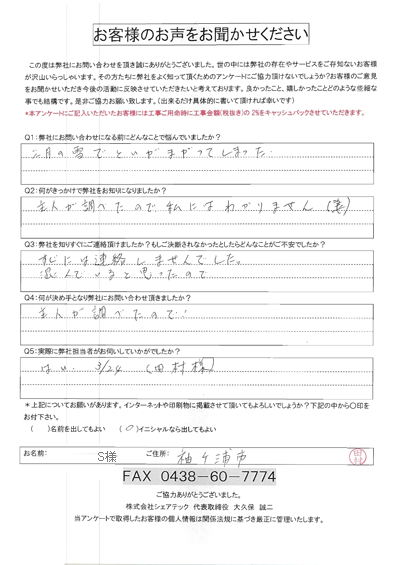 お客様のお声をお聞かせください
この度は弊社にお問い合わせを頂き誠にありがとうございました。世の中には弊社の存在やサービスをご存知ないお客様
が沢山いらっしゃいます。その方たちに弊社をよく知って頂くためのアンケートにご協力頂けないでしょうか?お客様のご意見
をお聞かせいただき今後の活動に反映させていただきたいと考えております。良かったこと、嬉しかったことどのような些細な
事でも結構です。是非ご協力お願い致します。（出来るだけ具体的に書いて頂ければ幸いです）
*本アンケートにご記入いただいたお客様には工事ご用命時に工事金額(税抜き)の 2%をキャッシュバックさせていただきます。
Q1:弊社にお問い合わせになる前にどんなことで悩んでいましたか?
二月の雪でといがまがってしまった.
Q2:何がきっかけで弊社をお知りになりましたか?
主人が調べたので私にはわかりません（妻）
Q3:弊社を知りすぐにご連絡頂けましたか?もしご決断されなかったとしたらどんなことがご不安でしたか?
すぐには連絡しませんでした。
混んでいると思ったので
Q4:何が決め手となり弊社にお問い合わせ頂きましたか?
主人が調べたので.
Q5:実際に弊社担当者がお伺いしていかがでしたか?
はい. 3/24 （田村様）
*上記についてお願いがあります。インターネットや印刷物に掲載させて頂いてもよろしいでしょうか?下記の中から〇印を
お付下さい。
（　）名前を出してもよい　（〇）イニシャルなら出してもよい
お名前: S様 ご住所: 袖ケ浦市 田村
FAX 0438-60-7774
ご協力ありがとうございました。
株式会社シェアテック 代表取締役 大久保 誠二
当アンケートで取得したお客様の個人情報は関係法規に基づき厳正に管理いたします。